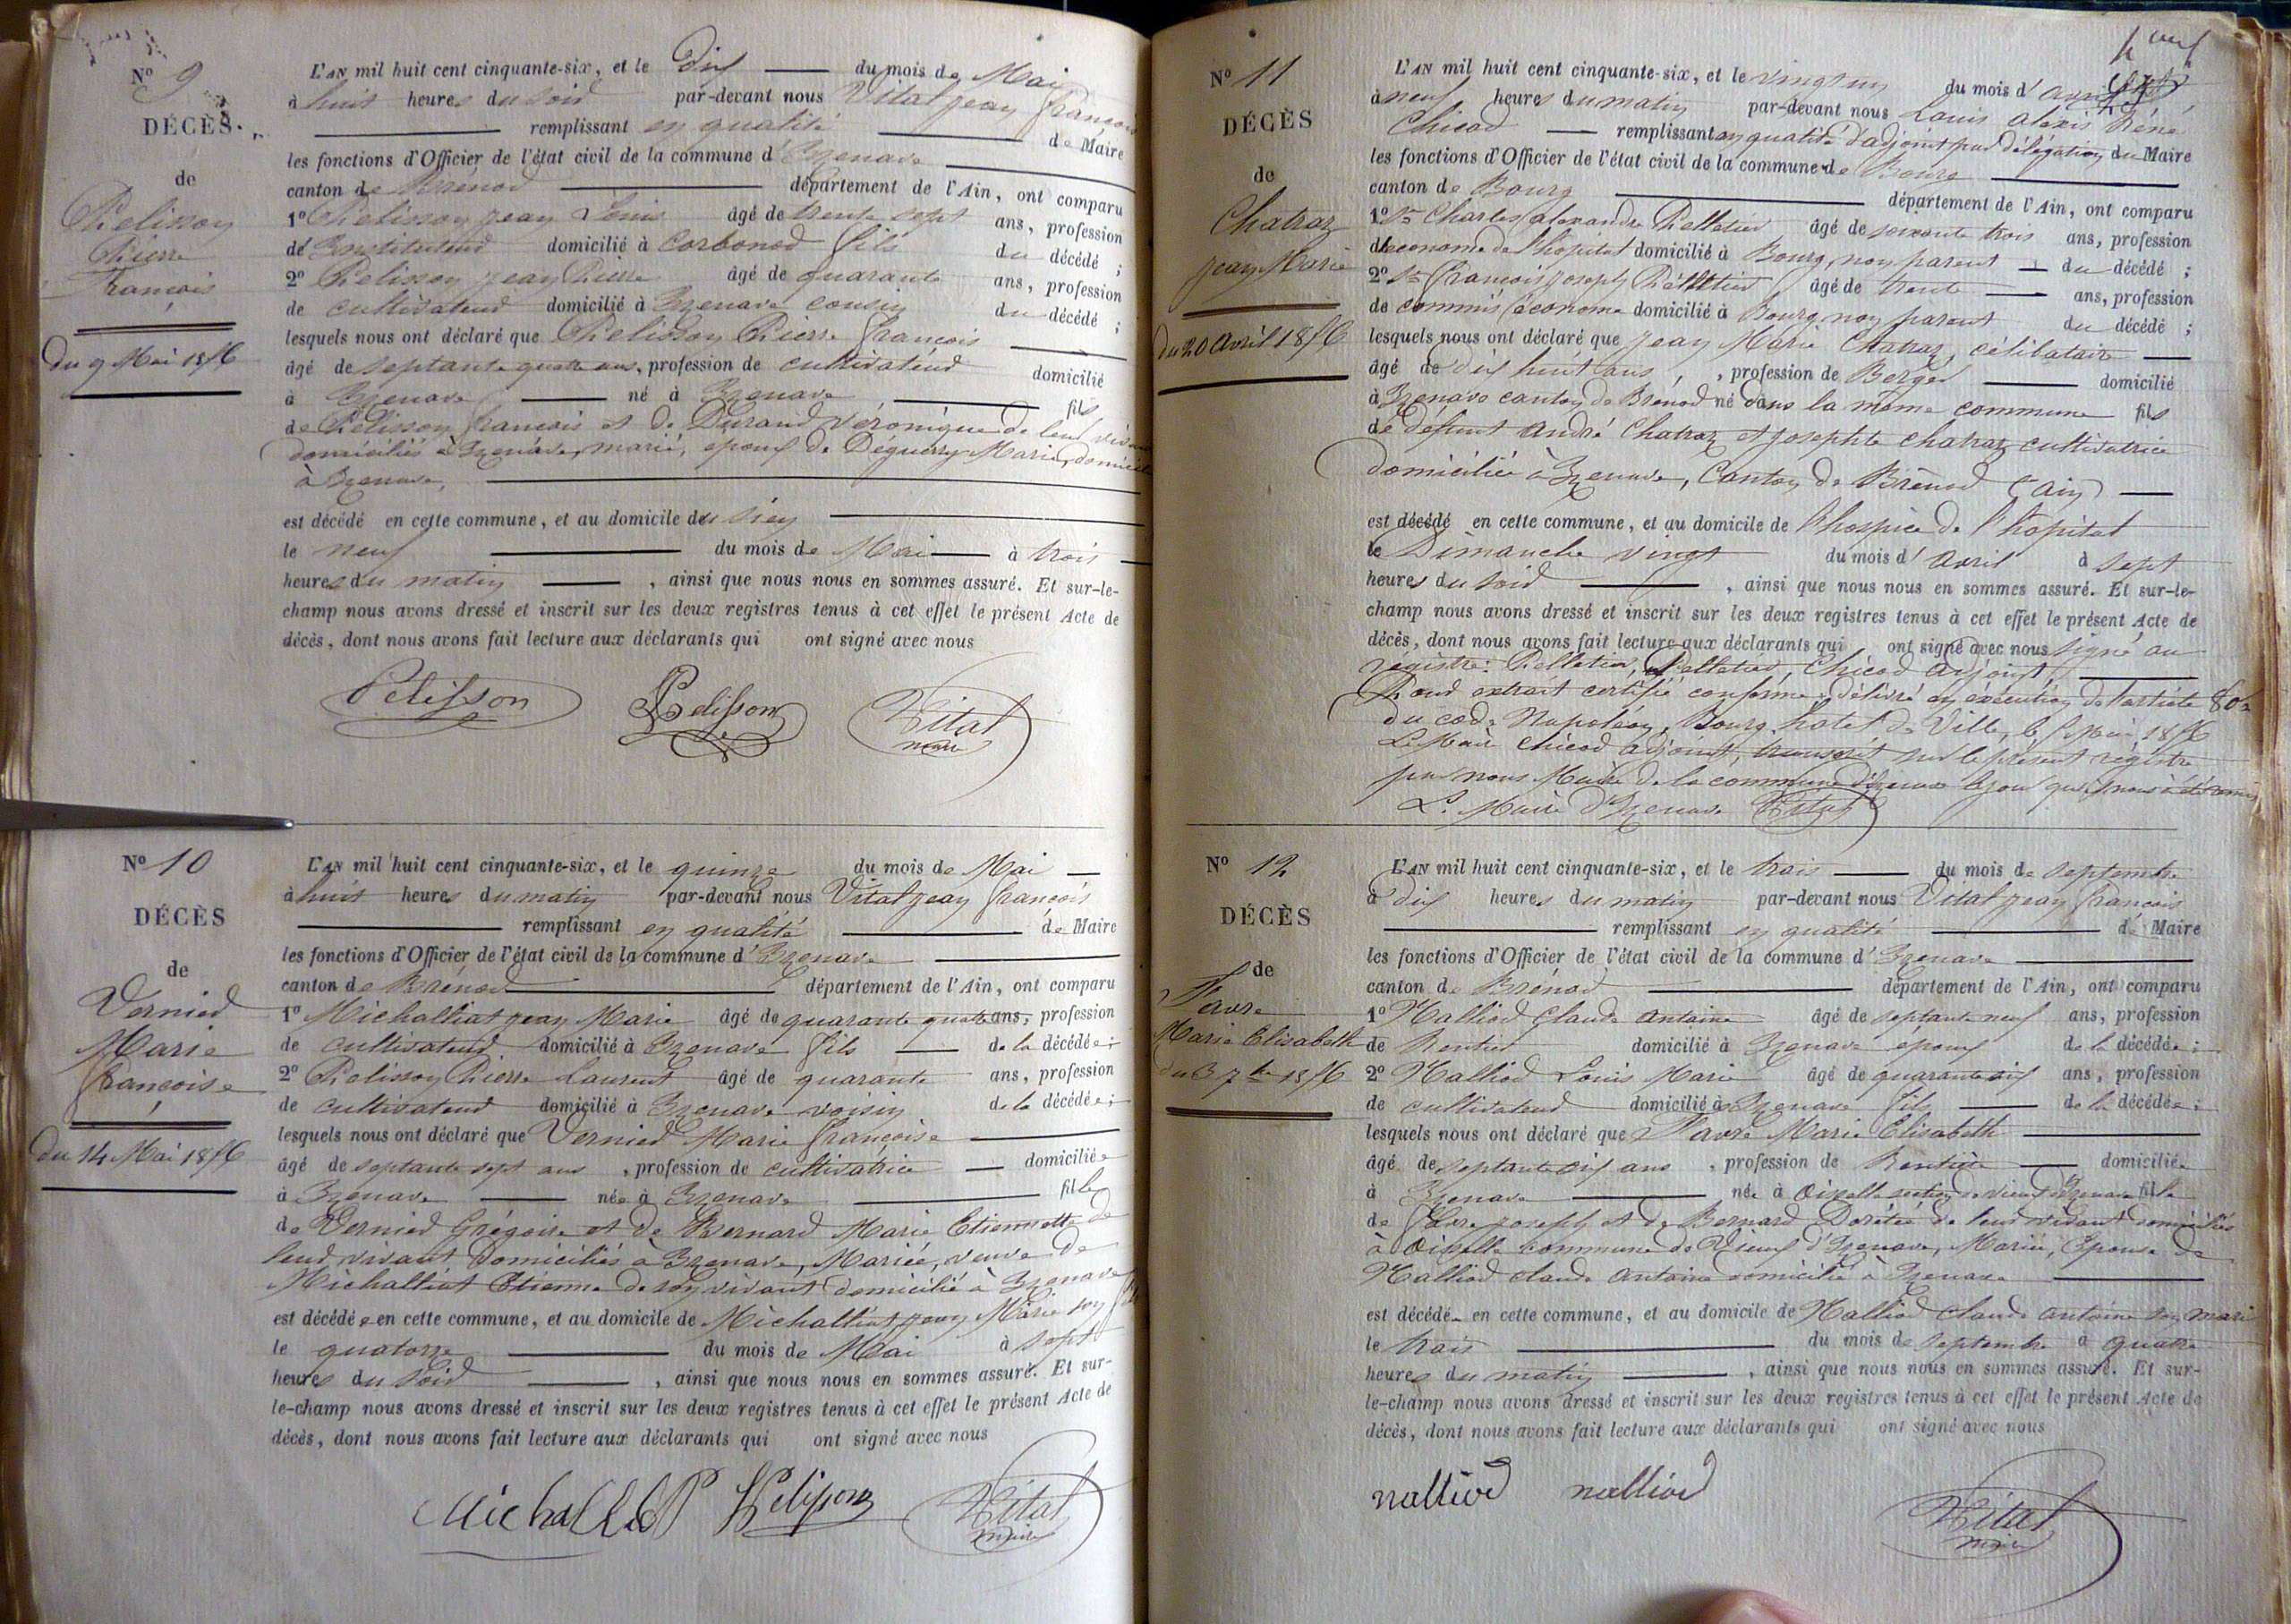 Nº 9
DÉCÈS
de
Pelisson
Pierre
François
du 9 Mai 1856
L'AN mil huit cent cinquante-six, et le dix du mois de Mai
à huit heures du soir par-devant nous Vital jean françois
remplissant en qualité de Maire
les fonctions d'Officier de l'état civil de la commune d'Izenave
canton de Brénod département de l'Ain, ont comparu
1º Pelisson jean Louis âgé de trente sept ans, profession
de Instituteur domicilié à Corbonod fils du décédé ;
2º Pelisson jean Pierre âgé de quarante ans, profession
de cultivateur domicilié à Izenave cousin du décédé ;
lesquels nous ont déclaré que Pelisson Pierre françois
âgé de septante quatre ans, profession de cultivateur domicilié
à Izenave né à Izenave fils
de Pélisson françois et de Durand Véronique de leur vivant
domiciliés à Izenave, marié, epoux de Déguerry Marie, domiciliée
à Izenave,
est décédé en cette commune, et au domicile du sien
le neuf du mois de Mai à trois
heures du matin , ainsi que nous nous en sommes assuré. Et sur-le-
champ nous avons dressé et inscrit sur les deux registres tenus à cet effet le présent Acte de
décès, dont nous avons fait lecture aux déclarants qui ont signé avec nous
Pelisson Pelisson Vital
maire
Nº 10
DÉCÈS
de
Vernier
Marie
françoise
du 14 Mai 1856
L'AN mil huit cent cinquante-six, et le quinze du mois de Mai
à huit heures du matin par-devant nous Vital jean françois
remplissant en qualité de Maire
les fonctions d'Officier de l'état civil de la commune d'Izenave
canton de Brénod département de l'Ain, ont comparu
1º Michalliat jean Marie âgé de quarante quatre ans, profession
de cultivateur domicilié à Izenave fils de la décédée ;
2º Pelisson Pierre Laurent âgé de quarante ans, profession
de cultivateur domicilié à Izenave voisin de la décédée ;
lesquels nous ont déclaré que Vernier Marie françoise
âgé de septante sept ans , profession de cultivatrice domiciliée
à Izenave née à Izenave fille
de Vernier Grégoire et de Bernard Marie Etiennette de
leur vivant domiciliés à Izenave, Mariée, veuve de
Michalliat Etienne de son vivant domicilié à Izenave
est décédée en cette commune, et au domicile de Michalliat jean Marie son fils
le quatorze du mois de Mai à sept
heures du soir , ainsi que nous nous en sommes assuré. Et sur-
le-champ nous avons dressé et inscrit sur les deux registres tenus à cet effet le présent Acte de
décès, dont nous avons fait lecture aux déclarants qui ont signé avec nous
Pelisson Vital
maire
Nº 11
DÉCÈS
de
Chatraz
jean Marie
du 20 Avril 1856
L'AN mil huit cent cinquante-six, et le vingt un du mois d'avril
à neuf heures du matin par-devant nous Louis alexis Réné
Chicod remplissant en qualité d'adjoint par délégation du Maire
les fonctions d'Officier de l'état civil de la commune de Bourg
canton de Bourg département de l'Ain, ont comparu
1º Sr Charles alexandre Pelletier âgé de soixante trois ans, profession
d'econome de l'hopital domicilié à Bourg, non parent du décédé ;
2º Sr François joseph Pelletier âgé de trente ans, profession
de commis économe domicilié à Bourg non parent du décédé ;
lesquels nous ont déclaré que jean Marie Chatraz, célibataire
âgé de dix huit ans , profession de Berger domicilié
à Izenave canton de Brenod né dans la même commune fils
de défunt andré Chatraz et josephte chatraz cultivatrice
domiciliée à Izenave, Canton de Brénod (ain)
est décédé en cette commune, et au domicile de l'hospice de l'hopital
le Dimanche vingt du mois d'avril à sept
heures du soir , ainsi que nous nous en sommes assuré. Et sur-le-
champ nous avons dressé et inscrit sur les deux registres tenus à cet effet le présent Acte de
décès, dont nous avons fait lecture aux déclarants qui ont signé avec nous signé au
régistre: Pelletier, Pelletier, Chicod adjoint,
Pour extrait certifié conforme délivré en exécution de l'article 80
du code Napoléon, Bourg, hotel de Ville, le 5 Mai 1856
Le Maire Chicod adjoint, transcrit sur le présent régistre
par nous Maire de la commune d'Izenave le jour qu'il nous a été remis
Le Maire d'Izenave Vital
Nº 12
DÉCÈS
de
Favre
Marie Elisabeth
du 3 7bre 1856
L'AN mil huit cent cinquante-six, et le trois du mois de septembre
à dix heures du matin par-devant nous Vital jean françois
remplissant en qualité de Maire
les fonctions d'Officier de l'état civil de la commune d'Izenave
canton de Brénod département de l'Ain, ont comparu
1º Nalliod Claude Antoine âgé de septante neuf ans, profession
de Rentier domicilié à Izenave epoux de la décédée ;
2º Nalliod Louis Marie âgé de quarante six ans, profession
de cultivateur domicilié à Izenave fils de la décédée ;
lesquels nous ont déclaré que Favre Marie Elisabeth
âgé de septante six ans , profession de Rentière domiciliée
à Izenave née à Oisselle section de vieux d'Izenave fille
de Favre joseph et de Bernard Dorétée de leur vivant domiciliés
à Oisselle commune de Vieux d'Izenave, Mariée, Epouse de
Nalliod claude Antoine domicilié à Izenave
est décédée en cette commune, et au domicile de Nalliod Claude Antoine son mari
le trois du mois de septembre à quatre
heures du matin , ainsi que nous nous en sommes assuré. Et sur-
le-champ nous avons dressé et inscrit sur les deux registres tenus à cet effet le présent Acte de
décès, dont nous avons fait lecture aux déclarants qui ont signé avec nous
nalliod nalliod Vital
maire